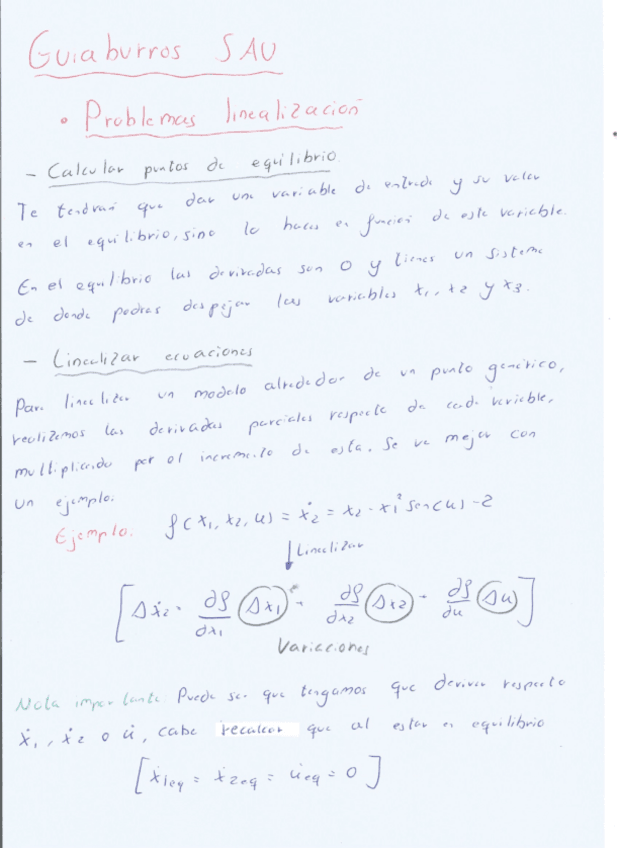 Guiaburros SAU
• Problemas linealización
- Calcular puntos de equilibrio.
Te tendran que dar una variable de entrada y su valor
en el equilibrio, sino lo haces en función de esta variable.
En el equilibrio las derivadas son 0 y tienes un sistema
de donde podras despejar las variables x1, x2 y x3.
- Linealizar ecuaciones
Para linealizar un modelo alrededor de un punto generico,
realizamos las derivadas parciales respecto de cada variable,
multiplicando por el incremento de esta. Se ve mejor con
un ejemplo:
Ejemplo: f(x1, x2, u) = ẋ2 = x2 · x1² sen(u) - 2
↓ Linealizar
[Δẋ2 · ∂f/∂x1 (Δx1) · ∂f/∂x2 (Δx2) · ∂f/∂u (Δu)]
Variaciones
Nota importante: Puede ser que tengamos que derivar respecto
ẋ1, ẋ2 o u̇, cabe recalcar que al estar en equilibrio
[ẋ1eq = ẋ2eq = u̇eq = 0]